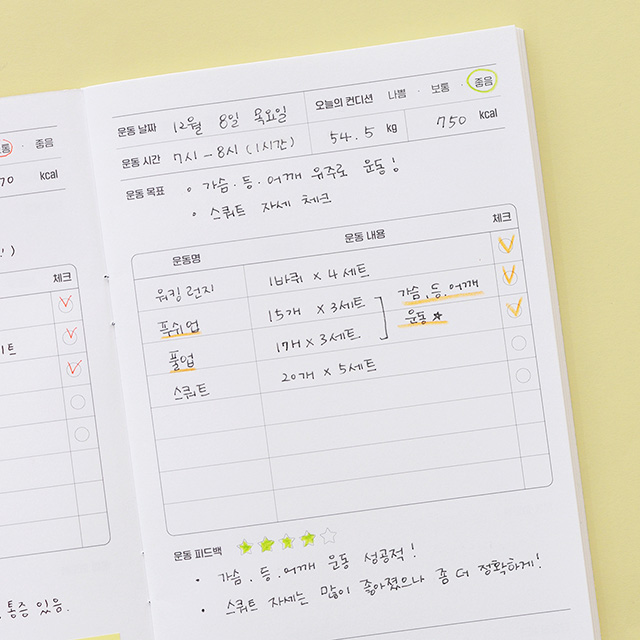 통
좋음
70
kcal
')
체크
트
통증 있음.
운동 날짜 12월 8일 목요일
오늘의 컨디션 나쁨 · 보통 · 좋음
운동 시간 7시 - 8시 (1시간)
54.5 kg
750 kcal
운동 목표 • 가슴. 등. 어깨 위주로 운동!
• 스쿼트 자세 체크
운동명 운동 내용 체크
워킹 런지 1바퀴 × 4세트
푸쉬업 15개 × 3세트 가슴, 등. 어깨
풀업 17개 × 3세트 운동 ★
스쿼트 20개 × 5세트
운동 피드백
• 가슴. 등. 어깨 운동 성공적!
• 스쿼트 자세는 많이 좋아졌으나 좀 더 정확하게!